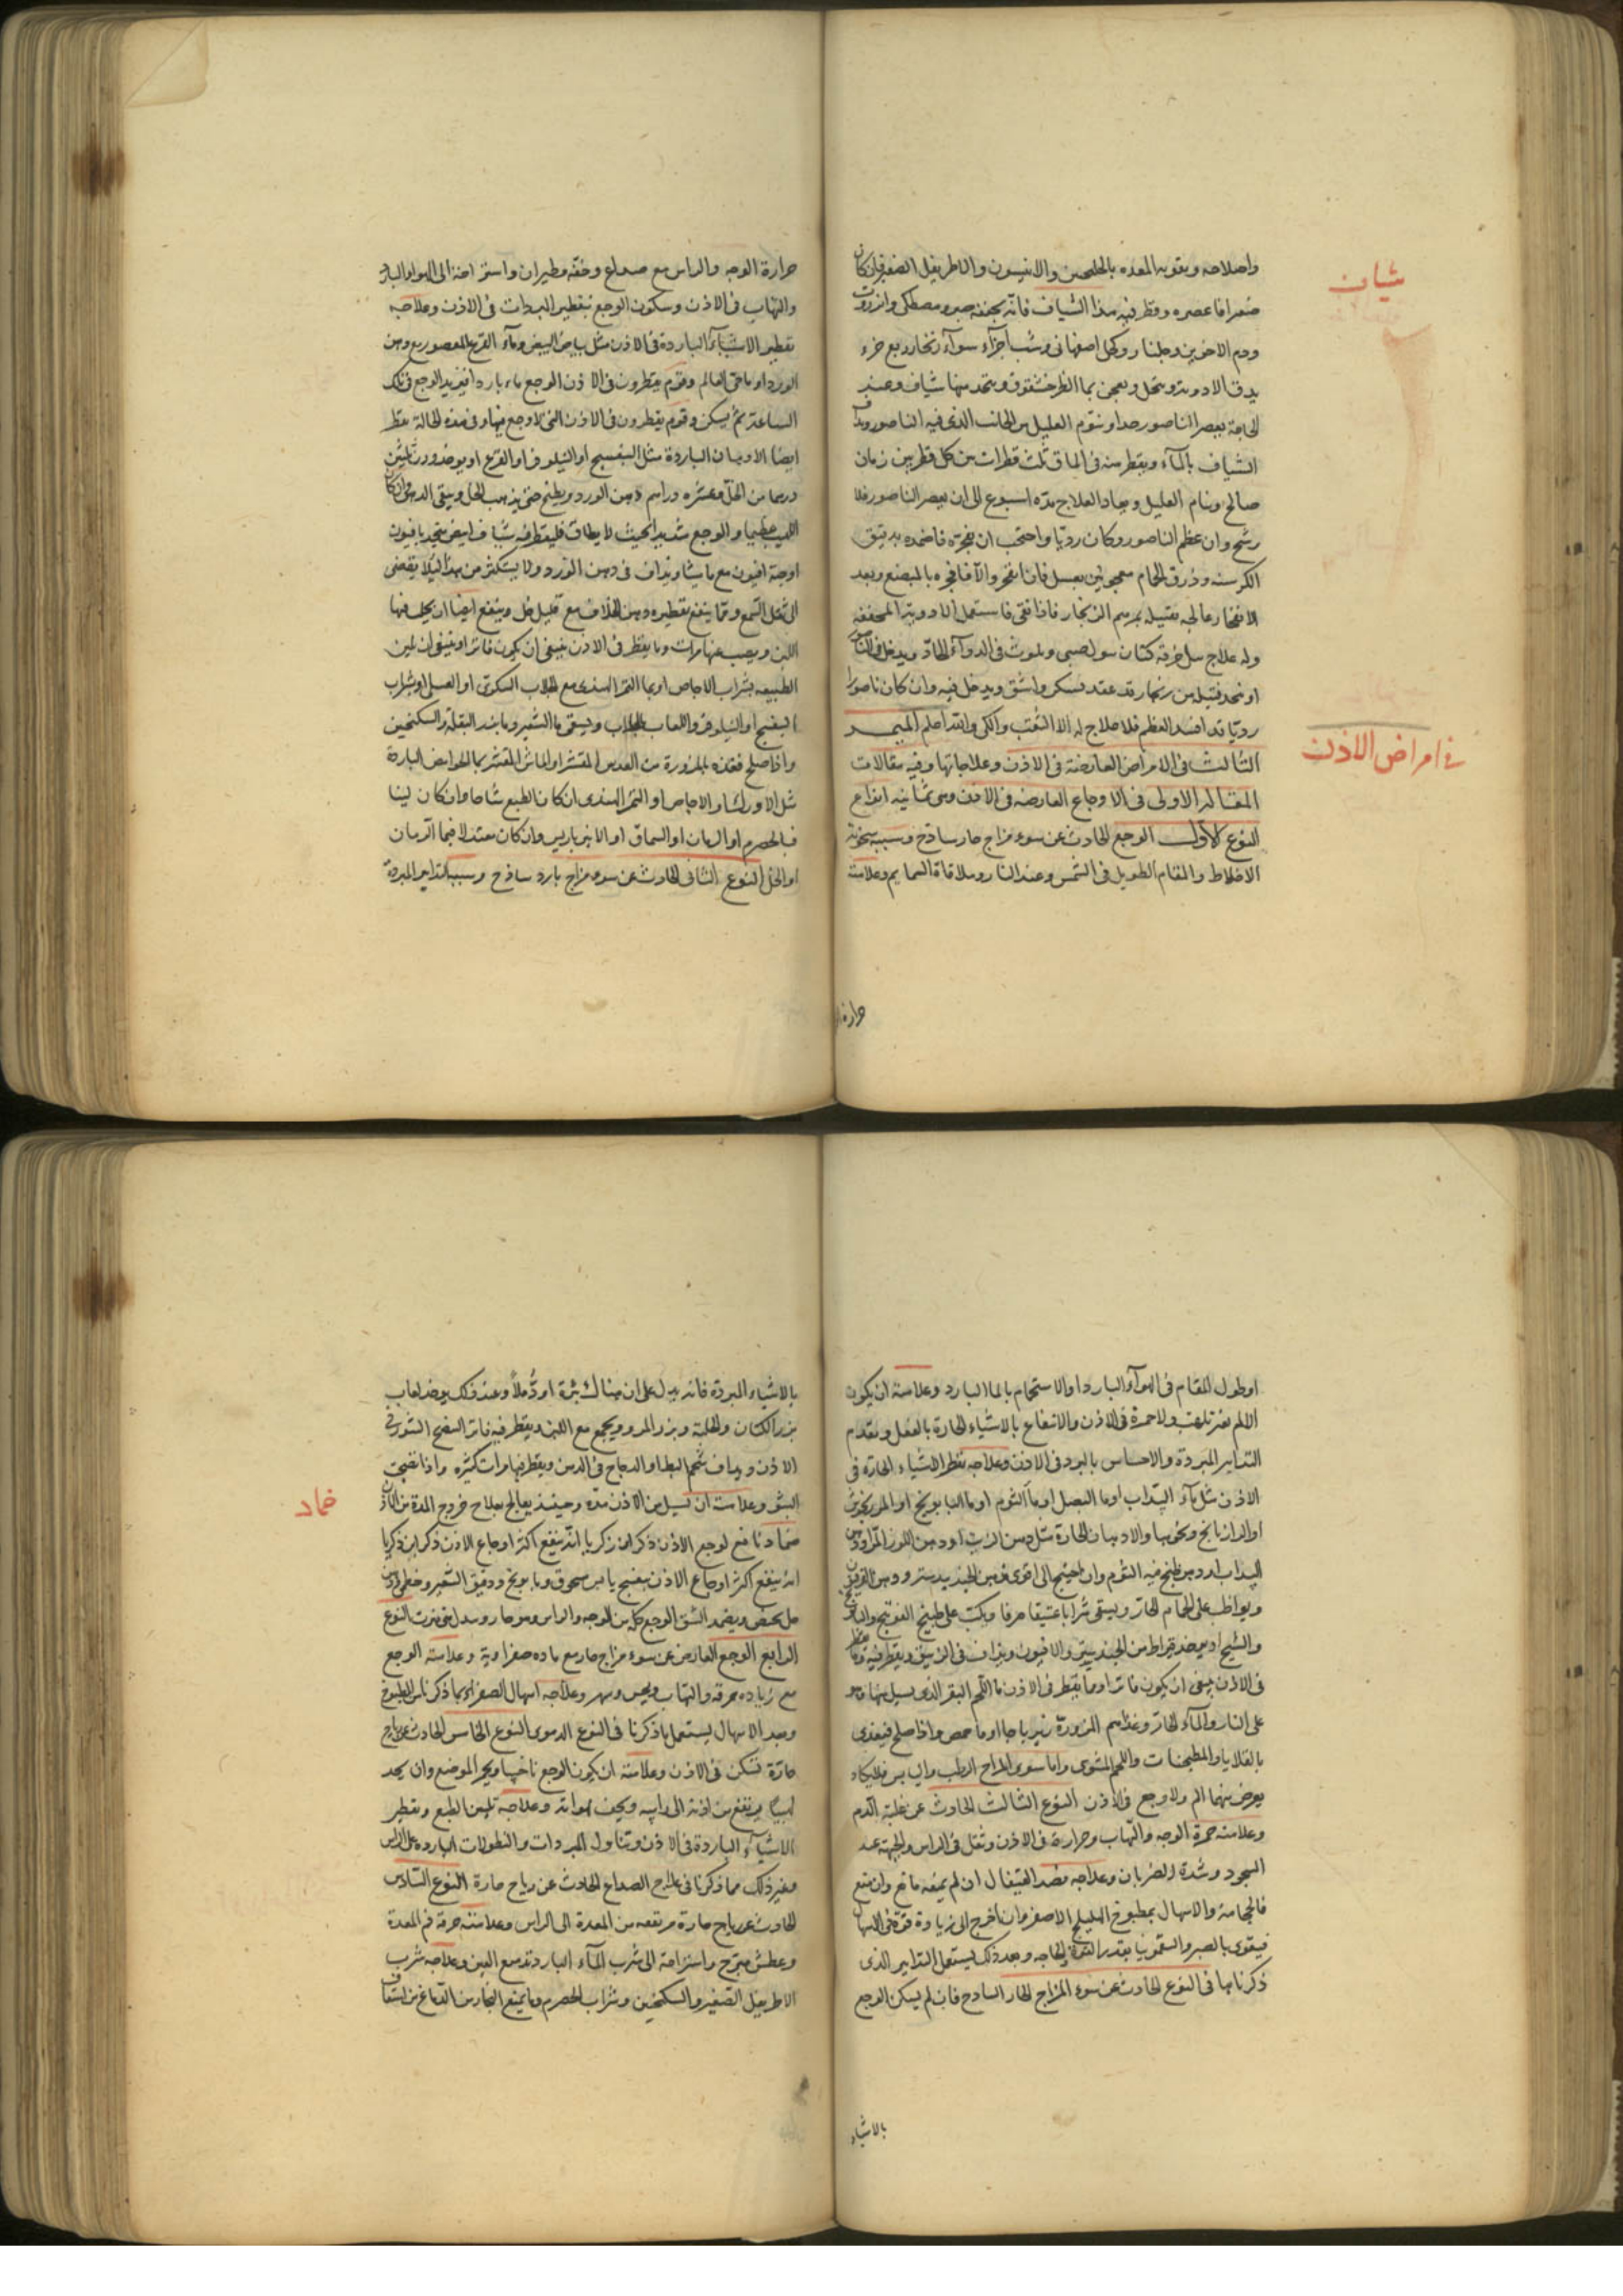 واصلاحه وبقوية المعده بالجلنجبين والانيسون والاطريفل الصغير فان كان
منفجرا فاعصره وقطر فيه هذا الشياف فانه يجففه صبر ومصطكى وانزروت
ودم الاخوين وجلنار وكحل اصفهانى وشب اجزآء سوآء زنجار ربع جزء
يدق الادوية وينخل ويعجن بما الطرخشقوق ويتخذ منها شياف وعند
الحاجة يعصر الناصور جدا وينوم العليل من الجانب الذى فيه الناصور ويداف
الشياف بالمآء ويقطر منه فى الماق ثلث قطرات بين كل قطرتين زمان
صالح وينام العليل ويعاد العلاج مدة اسبوع الى ان يعصر الناصور فلا
رشح وان عظم الناصور وكان رديا واحتجب ان يفجره فاضمده بدقيق
الكرسنه وذرق الحمام معجونين بعسل فان انفجر والا فافجره بالمبضع وبعد
الانفجار عالجه بفتيله بمرهم الزنجار فاذا نقى فاستعمل الادوية المجففه
وله علاج سل خرقة كتان سول صبى ولوث فى الدوآء الحاد ويدخل فى الناصور
او يتخذ فتيله من زنجار قد عقد بسكر واشق ويدخل فيه وان كان ناصورا
رديا قد افسد العظم فلا علاج له الا الثقب والكى والله اعلم
الثالث فى الامراض العارضة فى الاذن وعلاجاتها وفيه مقالات
المقالة الاولى فى الاوجاع العارضه فى الاذن وهى ثمانية انواع
النوع الاول الوجع الحادث عن سوء مزاج حار ساذج وسببه سخونة
الاخلاط والمقام الطويل فى الشمس وعند النار وملاقاة السمايم وعلامته
حرارة
شياف
فى امراض الاذن
حرارة الوجه والراس مع صداع وخفه وطيران واستراحة الى الهواء البارد
والتهاب فى الاذن وسكون الوجع بتقطير المبردات فى الاذن وعلاجه
تقطير الاشيآء الباردة فى الاذن مثل بياض البيض ومآء القرع المعصور مع دهن
الورد او ماحى العالم وقوم يقطرون فى الاذن الوجع ماء باردا فيزيد الوجع فى تلك
الساعة ثم يسكن وقوم يقطرون فى الاذن التى لا وجع فيها وفى هذه الحالة يقطر
ايضا الادهان الباردة مثل البنفسج او النيلوفر او القرع او يوخذ وزن ثلثين
درهما من الخل وعشره دراهم دهن الورد ويطبخ حتى يذهب الخل ويبقى الدهن وان كان
اللهيب عظيما والوجع شديدا بحيث لا يطاق فليقطر فيه شياف ابيض متخذ بافيون
او حبة افيون مع ماميثا ويداف فى دهن الورد ولا يستكثر من هذا ليلا يفضى
الى ثقل السمع ومما ينفع تقطيره دهن الخلاف مع قليل خل وينفع ايضا ان يحلب فيها
اللبن ويصب عنها مرات وما يقطر فى الاذن ينبغى ان يكون فاترا وينبغى ان يلين
الطبيعه بشراب الاجاص او بما التمر الهندى مع الجلاب السكرى او العسلى او شراب
البنفسج او النيلوفر واللعاب بالجلاب ويسقى ما الشعير وما بزر البقله والسكنجبين
واذا صلح فغذه بالمزورة من العدس المقشر او الماش المقشر بما الحوامض الباردة
مثل الاورشك او الاجاص او التمر الهندى ان كان الطبع شاحا وان كان لينا
فبالحصرم او الرمان او السماق او الانبرباريس وان كان معتدلا فبما الرمان
او الخل النوع الثانى الحادث عن سوء مزاج بارد ساذج وسببه التدابير المبردة
او طول المقام فى الهوآء البارد او الاستحمام بالما البارد وعلامته ان يكون
الالم بغير تلهب ولا حمرة فى الاذن والانتفاع بالاشياء الحارة بالفعل وتقدم
التدابير المبردة والاحساس بالبرد فى الاذن وعلاجه تقطر الاشياء الحارة فى
الاذن مثل مآء السداب او ما البصل او مآء الثوم او ما البابونج او المرزنجوش
او الرازيانج ونحوها والادهان الحارة مثل دهن الزيت او دهن اللوز المر او دهن
السداب او دهن طبخ فيه الثوم وان احتيج الى اقوى فدهن الجندبيدستر ودهن الفربيون
ويواظب على الحمام الحار ويسقى شرابا عتيقا صرفا ويكب على طبيخ الفوتنج والبابونج
والشيح او يوخذ قيراط من الجندبيدستر والافيون ويداف فى الزنبق ويقطر فيه وما يقطر
فى الاذن ينبغى ان يكون فاترا ومما يقطر فى الاذن ما اللحم البقر الذى يسيل منها وهو
على النار والمآء الحار وغذاهم المزورة زيرباجا او ما حمص واذا صلح فيغذى
بالقلايا والمطجنات واللحم المشوى واما سوى المزاج الرطب واليابس فلا يكاد
يعرض منهما الم ولا وجع فى الاذن النوع الثالث الحادث عن غلبة الدم
وعلامته حمرة الوجه والتهاب وحرارة فى الاذن وثقل فى الراس والجبهة عند
السجود وشدة الضربان وعلاجه فصد القيفال ان لم يمنعه مانع وان منع
فالحجامة والاسهال بمطبوخ الهليلج الاصفر وان اخرج الى زيادة قوة فى الاسهال
فيقوى بالصبر والسقمونيا بقدر القوة والحاجه وبعد ذلك يستعمل التدابير الذى
ذكرناها فى النوع الحادث عن سوء المزاج الحار الساذج فان لم يسكن الوجع
بالاشياء
بالاشياء المبردة فانه يدل على ان هناك بثرة او دملا وعند ذلك يوخذ لعاب
بزر الكتان والحلبة وبزر المرو ويجمع مع اللبن ويقطر فيه فاترا لنضج البثور فى
الاذن ويداف شحم البط او الدجاج فى الدهن ويقطر فيها مرات كثيره واذا نضجت
البثور وعلامته ان يسيل من الاذن مدة وحينئذ يعالج بعلاج خروج المدة من الاذن
ضماد نافع لوجع الاذن ذكر ابن زكريا انه ينفع اكثر اوجاع الاذن ذكر ابن زكريا
انه ينفع اكثر اوجاع الاذن بنفسج يابس مسحوق وبابونج ودقيق الشعير وخطمى ودهن
حل يمخض ويضمد الشق الوجع كله من الوجه والراس وهو حار ويبدل متى فترت النوع
الرابع الوجع العارض عن سوء مزاج حار مع ماده صفراوية وعلامته الوجع
مع زياده حرقة والتهاب ويبس وسهر وعلاجه اسهال الصفراء بما ذكرنا من المطبوخ
وبعد الاسهال يستعمل ما ذكرنا فى النوع الدموى النوع الخامس الحادث عن رياح
حارة تسكن فى الاذن وعلامته ان يكون الوجع ناخسا ويحمر الموضع وان يجد
لهيبا يرتفع من اذنه الى راسه ويجف لهواته وعلاجه تليين الطبع وتقطير
الاشيآء الباردة فى الاذن وتناول المبردات والنطولات الباردة على الراس
وغير ذلك مما ذكرنا فى علاج الصداع الحادث عن رياح حارة النوع السادس
الحادث عن رياح حارة مرتفعه من المعدة الى الراس وعلامته حرقة فم المعدة
وعطش مبرح واستراحة الى شرب المآء البارد وتدميع العين وعلاجه شرب
الاطريفل الصغير والسكنجبين وشراب الحصرم وما يمنع البخار من الدماغ من استفاف
ضماد